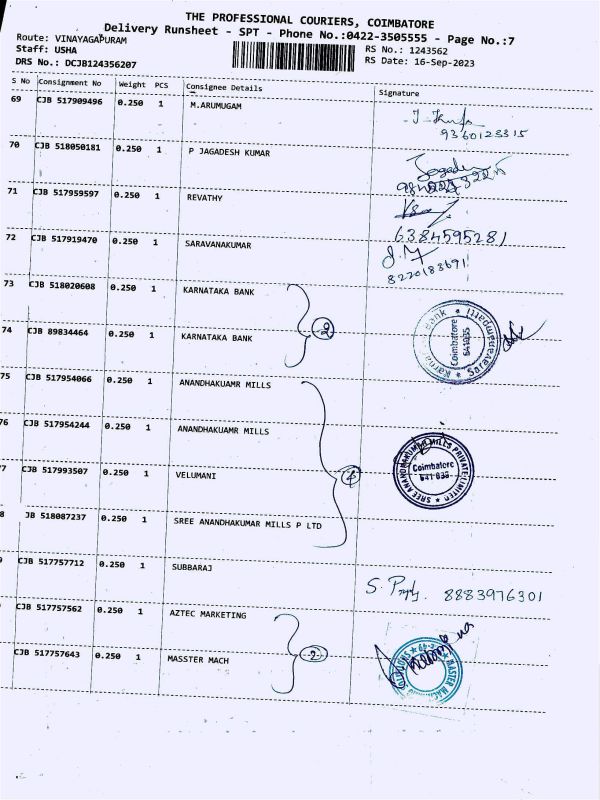 THE PROFESSIONAL COURIERS, COIMBATORE
Delivery Runsheet - SPT - Phone No.:0422-3505555 - Page No.:7
Route: VINAYAGAPURAM
Staff: USHA
DRS No.: DCJB124356207
RS No.: 1243562
RS Date: 16-Sep-2023
S No Consignment No Weight PCS Consignee Details Signature
69 CJB 517909496 0.250 1 M.ARUMUGAM
9360123315
70 CJB 518050181 0.250 1 P JAGADESH KUMAR
71 CJB 517959597 0.250 1 REVATHY
6384595281
72 CJB 517919470 0.250 1 SARAVANAKUMAR
8220183691
73 CJB 518020608 0.250 1 KARNATAKA BANK
2
74 CJB 89834464 0.250 1 KARNATAKA BANK
Bank * Saravanampatti
Coimbatore
641035
75 CJB 517954066 0.250 1 ANANDHAKUAMR MILLS
76 CJB 517954244 0.250 1 ANANDHAKUAMR MILLS
4
7 CJB 517993507 0.250 1 VELUMANI
SREE ANANDHAKUMAR MILLS PRIVATE LIMITED
Coimbatore
641 035
8 JB 518087237 0.250 1 SREE ANANDHAKUMAR MILLS P LTD
CJB 517757712 0.250 1 SUBBARAJ
S. 8883976301
CJB 517757562 0.250 1 AZTEC MARKETING
2
CJB 517757643 0.250 1 MASSTER MACH